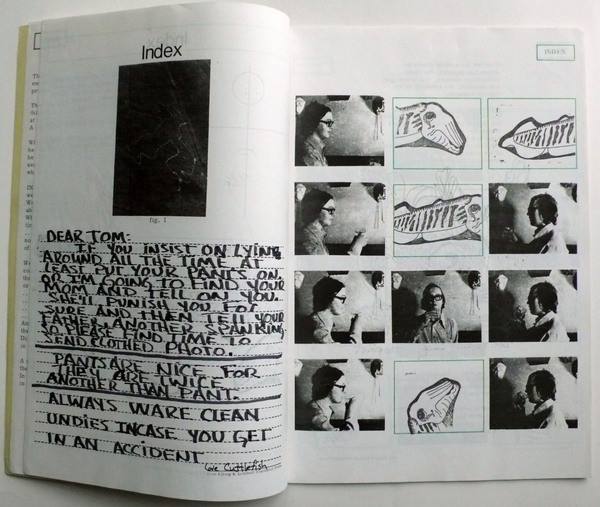 Index
fig. 1
DEAR TOM:
IF YOU INSIST ON LYING
AROUND ALL THE TIME AT
LEAST PUT YOUR PANTS ON.
OR I'M GOING TO FIND YOUR
MOM AND TELL ON YOU.
SHE'LL PUNISH YOU FOR
SURE AND THEN TELL YOUR
FATHER ANOTHER SPANKING
SO PLEASE FIND TIME TO
SEND CLOTHED PHOTO.
PANTS ARE NICE FOR
THEY ARE TWICE
ANOTHER THAN PANT.
ALWAYS WARE CLEAN
UNDIES INCASE YOU GET
IN AN ACCIDENT
Love Cuttlefish
INDEX